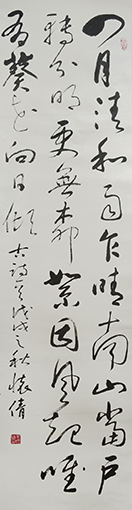 四月清和雨乍晴南山當戶
轉分明更無柳絮因風起唯
有葵花向日傾 古詩一首戊戌之秋懷倩